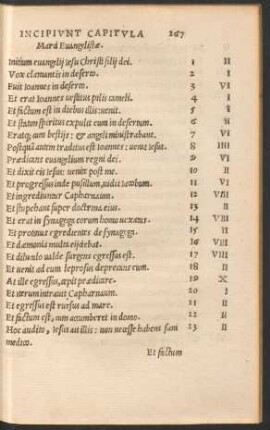 INCIPIVNT CAPITVLA 267
Marci Euangelistæ.
Initium euangelij iesu Christi filij dei. 1 II
Vox clamantis in deserto. 2 I
Fuit Ioannes in deserto. 3 VI
Et erat Ioannes uestitus pilis cameli. 4 I
Et factum est in diebus illis: uenit. 5 I
Et statim spiritus expulit eum in desertum. 6 II
Eratq; cum bestijs: & angeli ministrabant. 7 VI
Postquã autem traditus est Ioannes: uenit iesus. 8 IIII
Prædicans euangelium regni dei. 9 VI
Et dixit eis iesus: uenite post me. 10 II
Et progressus inde pusillum, uidit iacobum. 11 VI
Et ingrediuntur Capharnaum. 12 VIII
Et stupebant super doctrina eius. 13 II
Et erat in synagoga eorum homo uexatus. 14 VIII
Et protinus egredientes de synagoga. 15 II
Et dæmonia multa eijciebat. 16 VIII
Et diluculo ualde surgens egressus est. 17 VIII
Et uenit ad eum leprosus deprecans eum. 18 II
At ille egressus, cœpit prædicare. 19 X
Et iterum intrauit Capharnaum. 20 I
Et egressus est rursus ad mare. 21 II
Et factum est, cum accumberet in domo. 22 II
Hoc audito, iesus ait illis: non necesse habent sani 23 II
medico.
Et factum